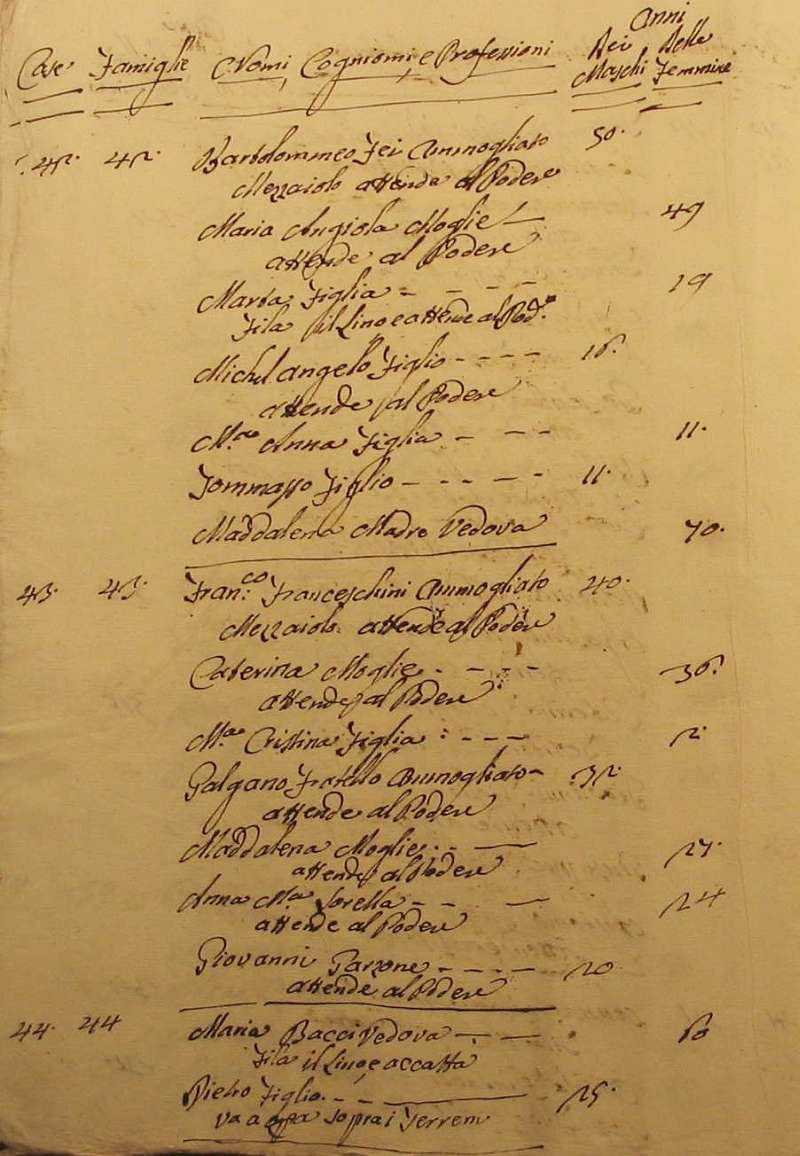 Anni
Case Famiglie Nomi, Cogniomi, e Professioni Dei Maschi Delle Femmine
42. 42. Bartolommeo Fei Ammogliato 50.
Mezzaiolo attende al Podere
Maria Angiola Moglie 49
attende al Podere
Marta Figlia - - - - 19
Fila il Lino e attende al Pod.e
Michelangelo Figlio - - - - 16.
attende al Podere
M.a Anna Figlia - - - 11.
Tommasso Figlio - - - - - 11.
Maddalena Madre Vedova 70.
43. 43. Fran:co Franceschini Ammogliato 40.
Mezzaiolo: attende al Podere
Caterina Moglie - - - - 36.
attende al Podere
M.a Cristina Figlia : - - - 2.
Galgano Fratello Ammogliato - 32.
attende al Podere
Maddalena Moglie - - -
attende al Podere
Anna M.a Sorella - - - 24
attende al Podere
Giovanni Garzone - - - - 20
attende al Podere
44. 44 Maria Bacci Vedova - - - 60
Fila il Lino, e accatta
Pietro Figlio. - - 25.
va a sopra i Terreni